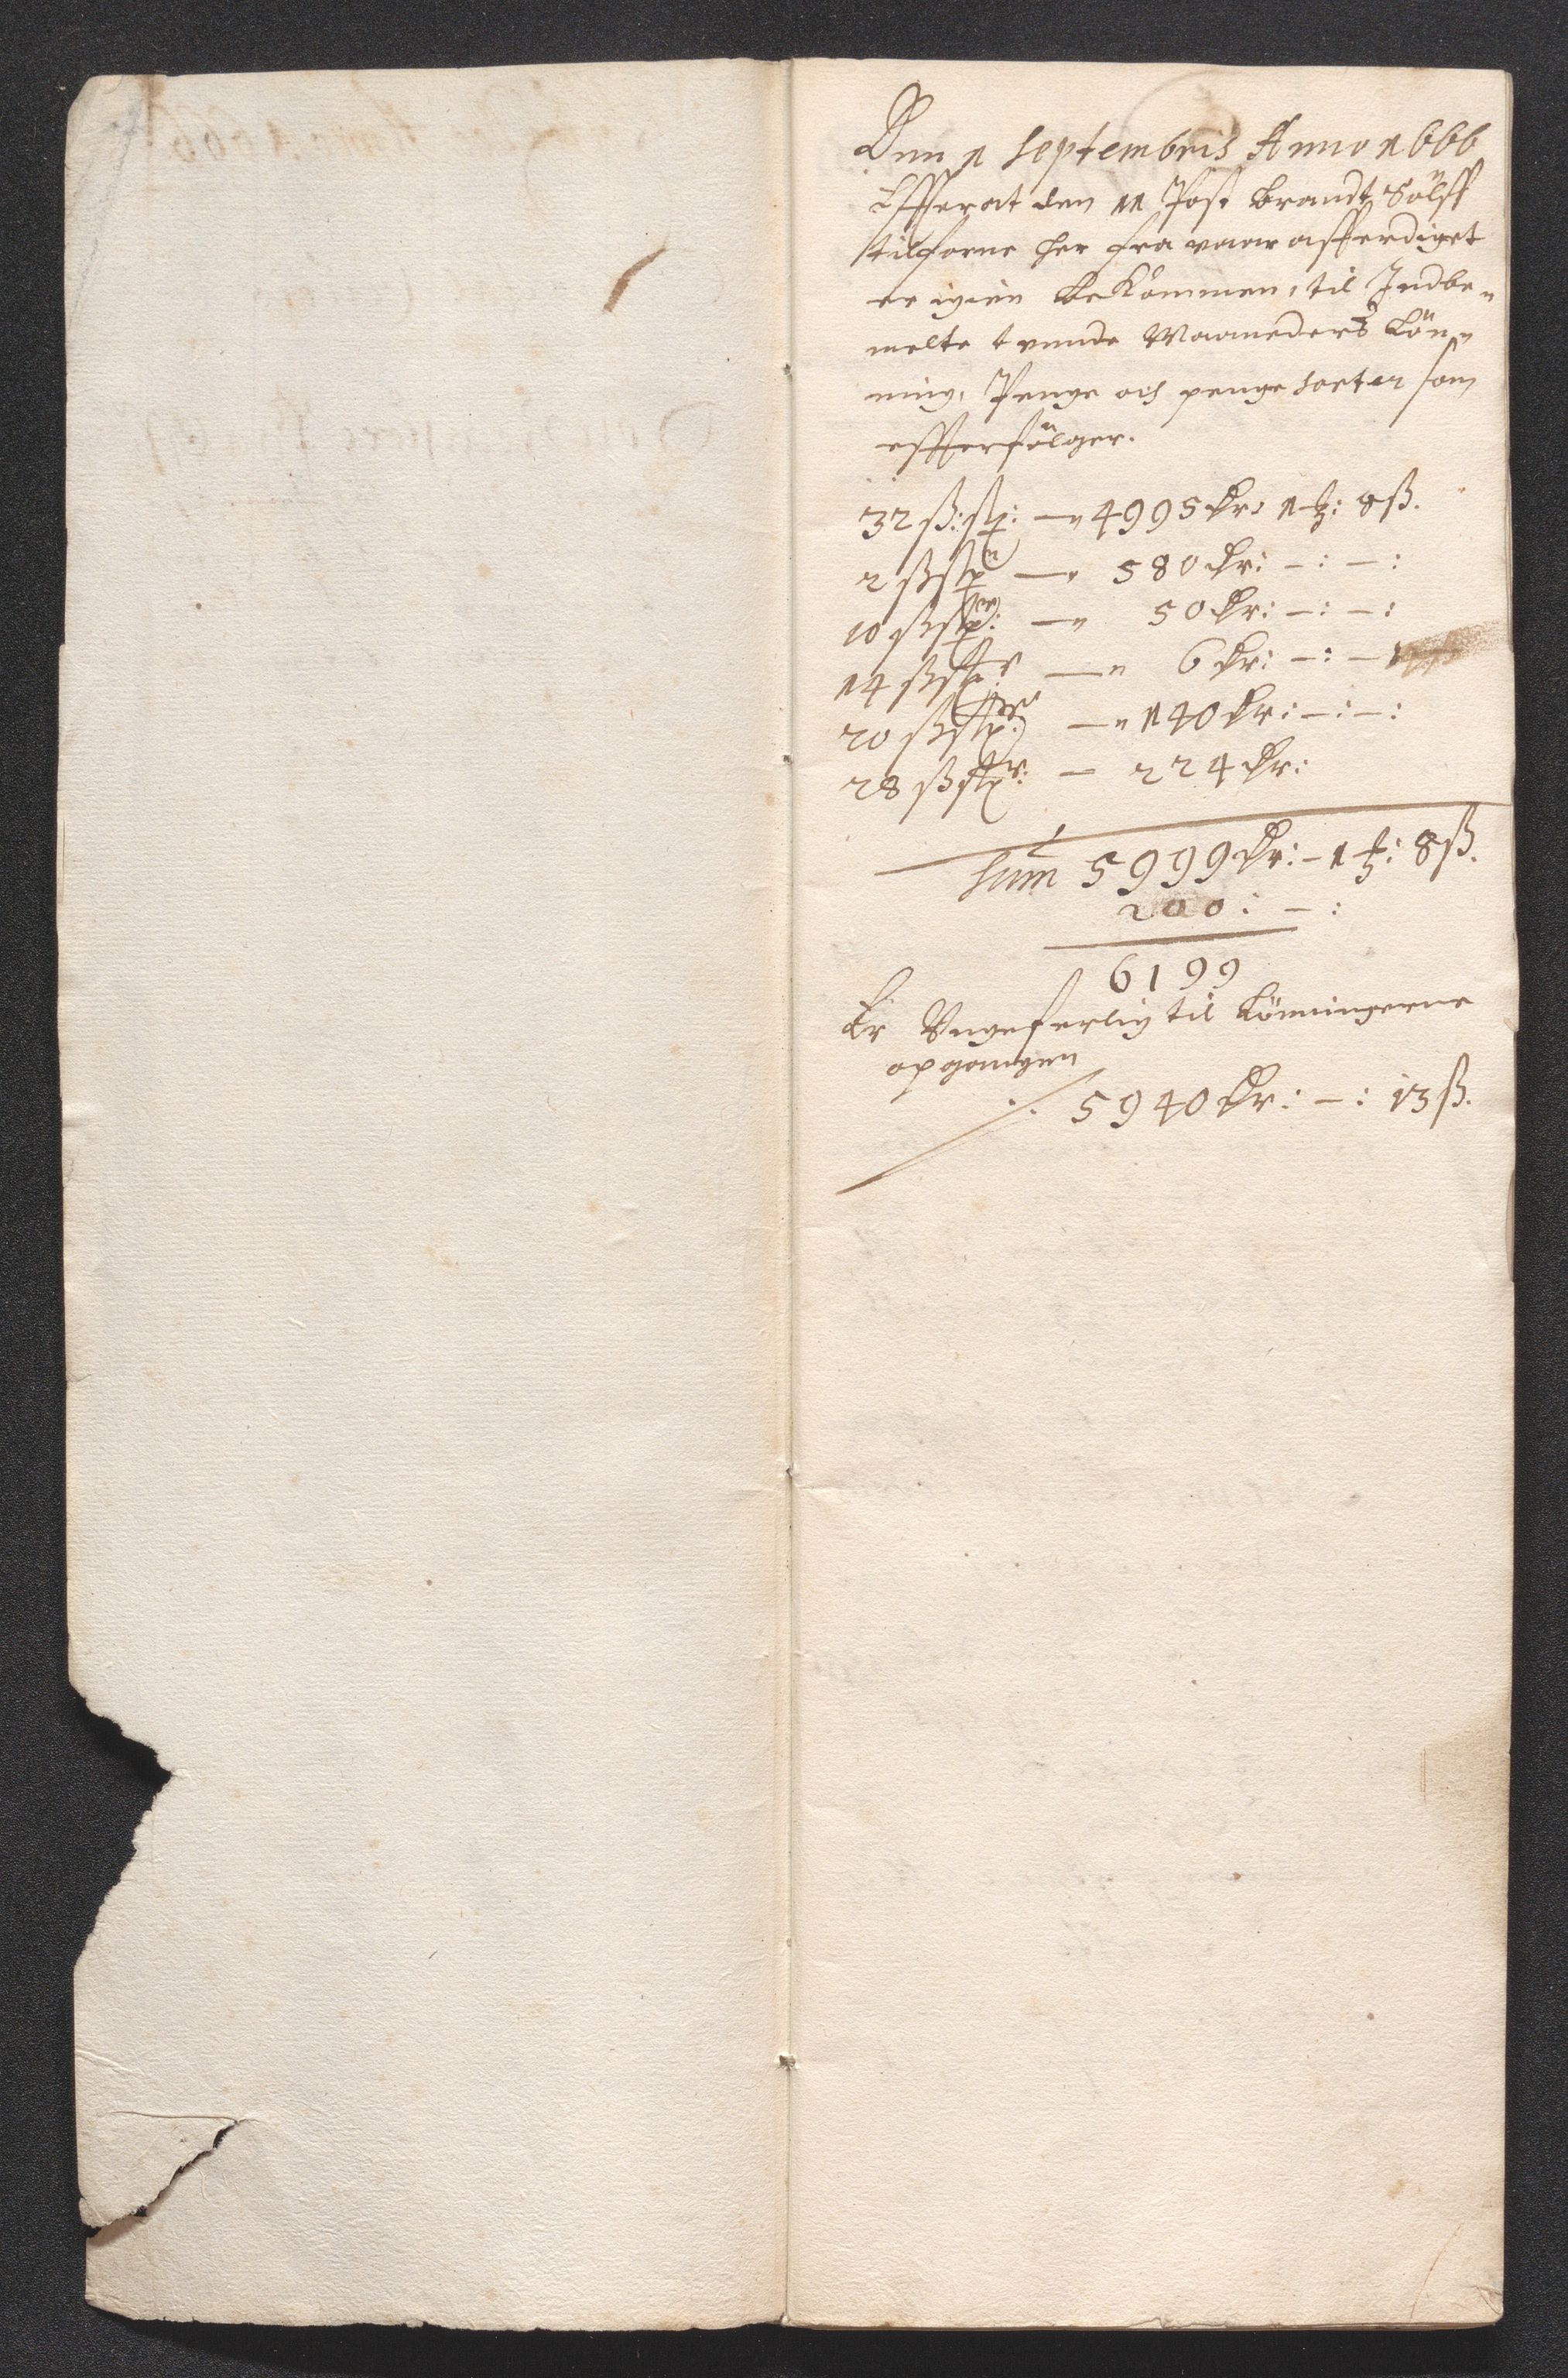 Den 1 Septembris Anno 1666
Effterat den 11 Post Brandt Sölff
tilforne her fra vaar afferdiget
er igien Bekommen, til Indbe„
melte trende Maaneders Lön„
ning, Penge och penge Sorter som
effterfölger.
32 ß: st: — 4995 dr: 1 ⅔: 8 ß.
2 ß st — 580 dr: –: –:
10 ß st: — 50 dr: –: –:
14 ß st — 6 dr: –: –
20 ß st — 140 dr: –: –:
28 ß st — 224 dr:
Sum 5999 dr: – 1 ⅔: 8 ß.
200: –:
6199
Er Ungeferlig til Lönningerne
opgangen
5940 dr: –: 13 ß.